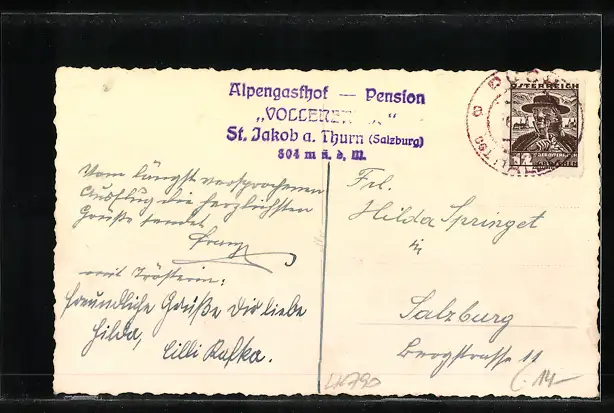 Alpengasthof — Pension
„VOLLERER
St. Jakob a. Thurn (Salzburg)
804 m ü. d. M.
ÖSTERREICH
12
Vom längst versprochenen
Ausflug die herzlichsten
Grüße sendet
Franz
mit Trösterin:
freundliche Grüße Dir liebe
Hilda, Cilli Kafka.
Frl.
Hilda Springet
in
Salzburg
Bergstrasse 11
14.–